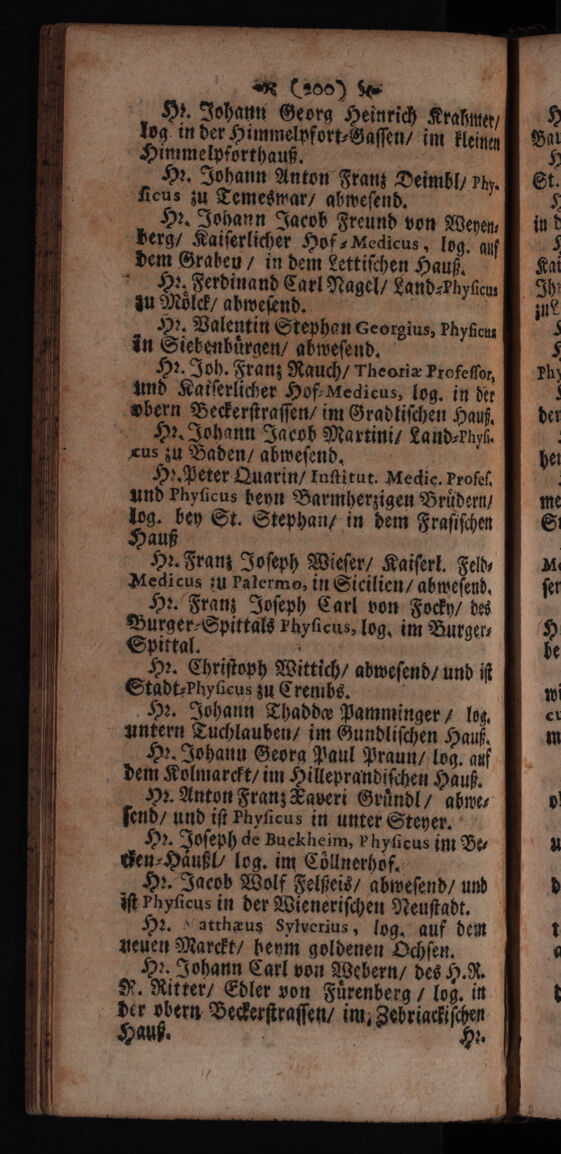 (200)
Hr. Johann Georg Heinrich Krahmer/
log. in der Himmelpfort-Gassen/ im kleinen
Himmelpforthauß.
Hr. Johann Anton Franz Deimbl/ Phy-
sicus zu Temeswar/ abwesend.
Hr. Johann Jacob Freund von Weyen-
berg/ Kaiserlicher Hof-Medicus, log. auf
dem Graben/ in dem Lettischen Hauß.
Hr. Ferdinand Carl Nagel/ Land-Physicus
zu Mölck/ abwesend.
Hr. Valentin Stephan Georgius, Physicus
in Siebenbürgen/ abwesend.
Hr. Joh. Franz Rauch/ Theoriæ Professor,
und Kaiserlicher Hof-Medicus, log. in der
obern Beckerstrassen/ im Gradlischen Hauß.
Hr. Johann Jacob Martini/ Land-Physi-
cus zu Baden/ abwesend.
Hr. Peter Quarin/ Institut. Medic. Profes.
und Physicus beyn Barmherzigen Brüdern/
log. bey St. Stephan/ in dem Frasischen
Hauß
Hr. Franz Joseph Wieser/ Kaiserl. Feld-
Medicus zu Palermo, in Sicilien/ abwesend.
Hr. Franz Joseph Carl von Focky/ des
Burger-Spittals Physicus, log. im Burger-
Spittal.
Hr. Christoph Wittich/ abwesend/ und ist
Stadt-Physicus zu Crembs.
Hr. Johann Thaddæ Pamminger/ log.
untern Tuchlauben/ im Gundlischen Hauß.
Hr. Johann Georg Paul Praun/ log. auf
dem Kolmarckt/ im Hilleprandischen Hauß.
Hr. Anton Franz Xaveri Gründl/ abwe-
send/ und ist Physicus in unter Steyer.
Hr. Joseph de Buckheim, Physicus im Be-
cken-Häußl/ log. im Cöllnerhof.
Hr. Jacob Wolf Felßeis/ abwesend/ und
ist Physicus in der Wienerischen Neustadt.
Hr. Matthæus Sylverius, log. auf dem
neuen Marckt/ beym goldenen Ochsen.
Hr. Johann Carl von Webern/ des H.R.
R. Ritter/ Edler von Fürenberg/ log. in
der obern Beckerstrassen/ im Zebriackischen
Hauß.
Hr.